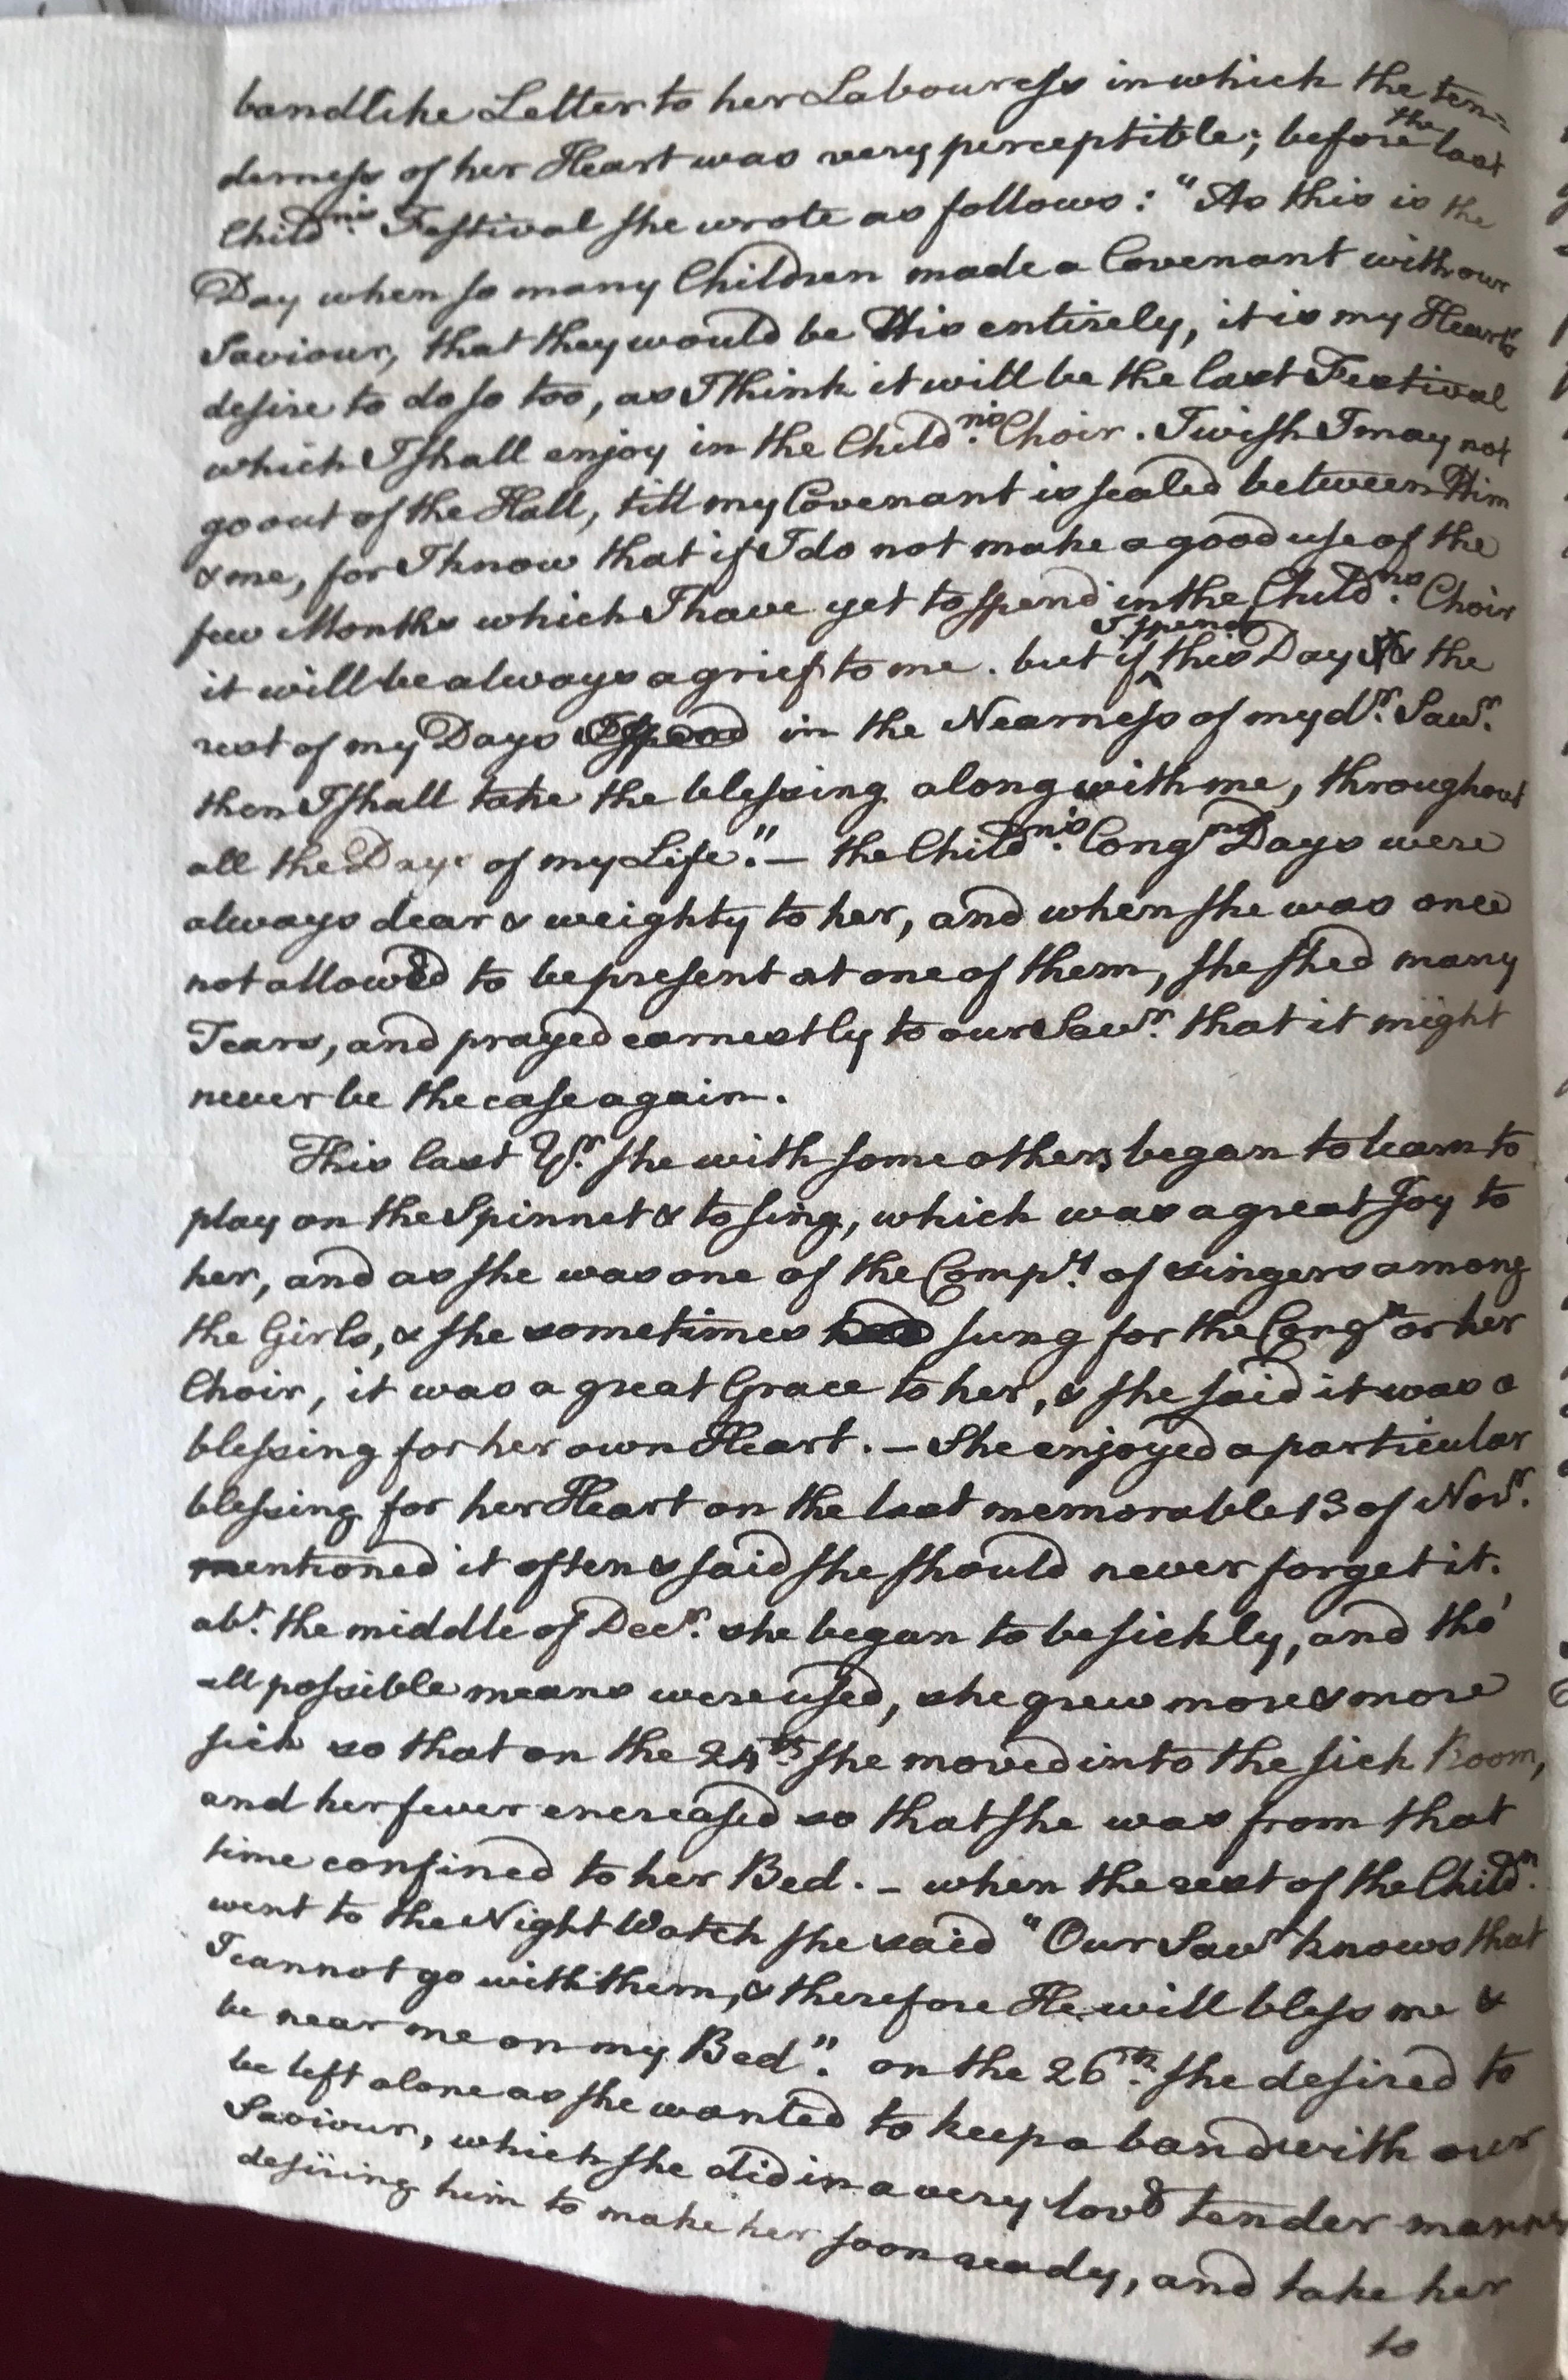 bandlike Letter to her Labouress in which the ten=
derness of her Heart was very perceptible; before the last
Childn's Festival she wrote as follows: "As this is the
Day when so many Children made a Covenant with our
Saviour, that they would be His entirely, it is my Heart's
desire to do so too, as I think it will be the last Festival
which I shall enjoy in the Childn's Choir. I wish I may not
go out of the Hall, till my Covenant is sealed between Him
& me, for I know that if I do not make a good use of the
few Months which I have yet to spend in the Childns Choir
it will be always a grief to me. but if I spend this Day & the
rest of my Days I spend in the Nearness of my dr. Savr.
then I shall take the blessing along with me, throughout
all the Days of my Life." — the Childn's Congn Days were
always dear & weighty to her, and when she was once
not allowed to be present at one of them, she shed many
Tears, and prayed earnestly to our Savr. that it might
never be the case again.
This last Yr. she with some others began to learn to
play on the Spinnet & to sing, which was a great Joy to
her, and as she was one of the Compy. of singers among
the Girls, & she sometimes had sung for the Congn or her
Choir, it was a great Grace to her, & she said it was a
blessing for her own Heart. — She enjoyed a particular
blessing for her Heart on the last memorable 13 of Novr.
mentioned it often & said she should never forget it.
abt. the middle of Decr. she began to be sickly, and tho'
all possible means were used, she grew more & more
sick so that on the 24th. she moved into the sick Room,
and her fever encreased so that she was from that
time confined to her Bed. — when the rest of the Childn.
went to the Night Watch she said "Our Savr knows that
I cannot go with them, & therefore He will bless me &
be near me on my Bed". on the 26th. she desired to
be left alone as she wanted to keep a band with our
Saviour, which she did in a very lovd tender manner
desiring him to make her soon ready, and take her
to